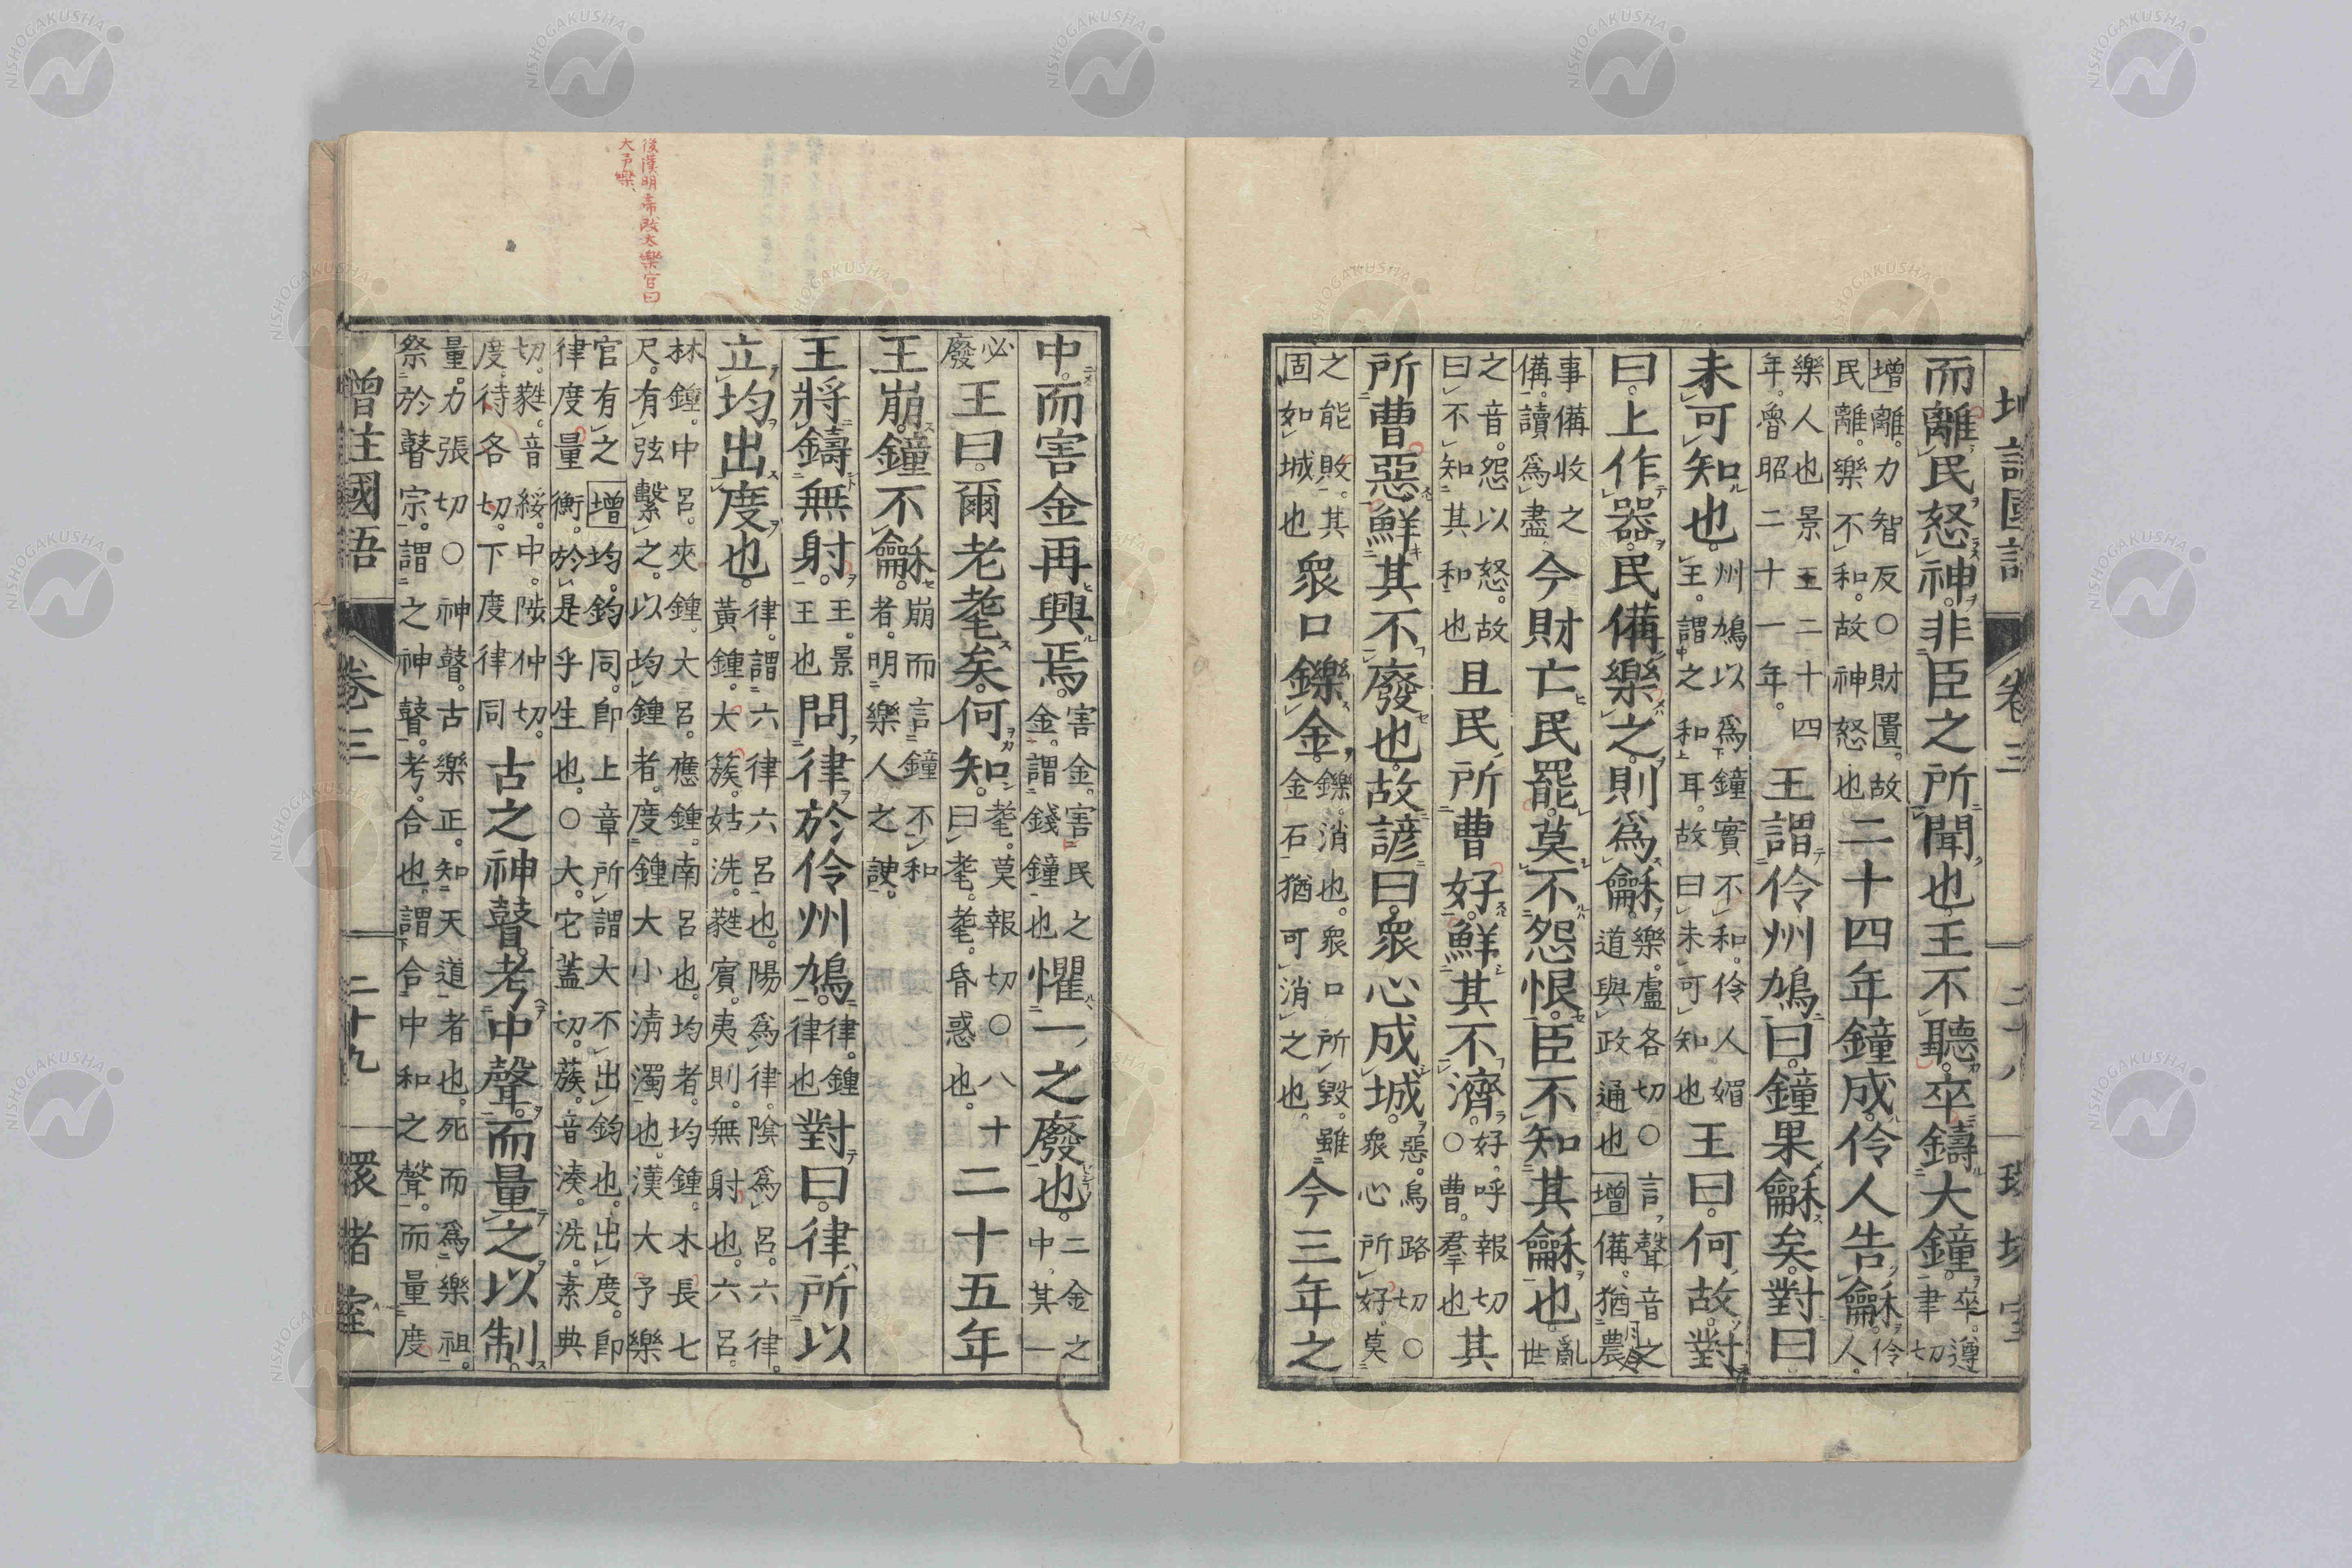 而離民怒神。非臣之所聞也。王不聽。卒鑄大鐘。卒。遵聿切
增離。力智反〇財匱。故民離。樂不和。故神怒也二十四年鐘成。伶人告龢。伶人。
樂人也景王二十四年。魯昭二十一年。王謂伶州鳩曰。鐘果龢矣。對曰
未可知也。州鳩以爲鐘實不和。伶人媚王。謂之和耳。故曰未可知也王曰。何故。對
曰。上作器。民備樂之。則爲龢。樂。盧各切〇言聲音之道與政通也增備。猶農
事備收之備。讀爲盡今財亡民罷。莫不怨恨。臣不知其龢也。亂世
之音。怨以怒。故曰不知其和也且民所曹好。鮮其不濟。好。呼報切〇曹。羣也其
所曹惡。鮮其不廢也。故諺曰。衆心成城。惡。烏路切〇衆心所好。莫
之能敗。其固如城也衆口鑠金。鑠。消也。衆口所毀。雖金石猶可消之也。今三年之
中。而害金再興焉。害金。害民之金。謂錢鐘也懼一之廢也。二金之中。其一
必廢王曰。爾老耄矣。何知。耄。莫報切〇八十曰耄。耄。昏惑也。二十五年
王崩。鐘不龢。崩而言鐘不和者。明樂人之諛。
王將鑄無射。王。景王也問律於伶州鳩。律。鍾律也對曰。律所以
立均出度也。律。謂六律六呂也。陽爲律。陰爲呂。六律。黃鍾。大簇。姑洗。蕤賓。夷則。無射也。六呂。
林鍾。中呂。夾鍾。大呂。應鍾。南呂也。均者。均鍾。木長七尺。有弦繫之。以均鍾者。度鍾大小淸濁也。漢大予樂
官有之增均。鈞同。卽上章所謂大不出鈞也。出度。卽律度量衡。於是乎生也。〇大。它蓋切。蔟。音湊。洗。素典
切。蕤。音綏。中。陟仲切。度。待各切。下度律同古之神瞽。考中聲。而量之以制。
量。力張切〇神瞽。古樂正。知天道者也。死而爲樂祖。祭於瞽宗。謂之神瞽。考。合也。謂合中和之聲。而量度
增註國語 卷三 二十九 環堵室
後漢明帝改大樂官曰
大予樂、